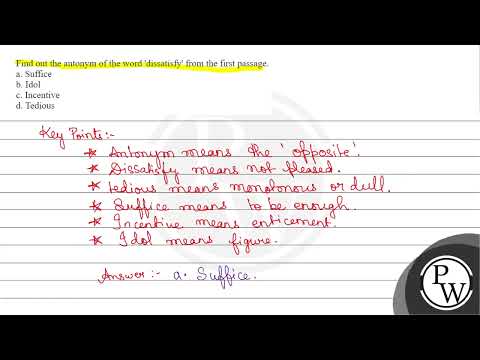 Find out the antonym of the word 'dissatisfy' from the first passage.
a. Suffice
b. Idol
c. Incentive
d. Tedious
Key Points:-
* Antonym means the 'opposite'.
* Dissatisfy means not pleased.
* tedious means monotonous or dull.
* Suffice means to be enough.
* Incentive means enticement.
* Idol means figure.
Answer:- a. Suffice.
PW